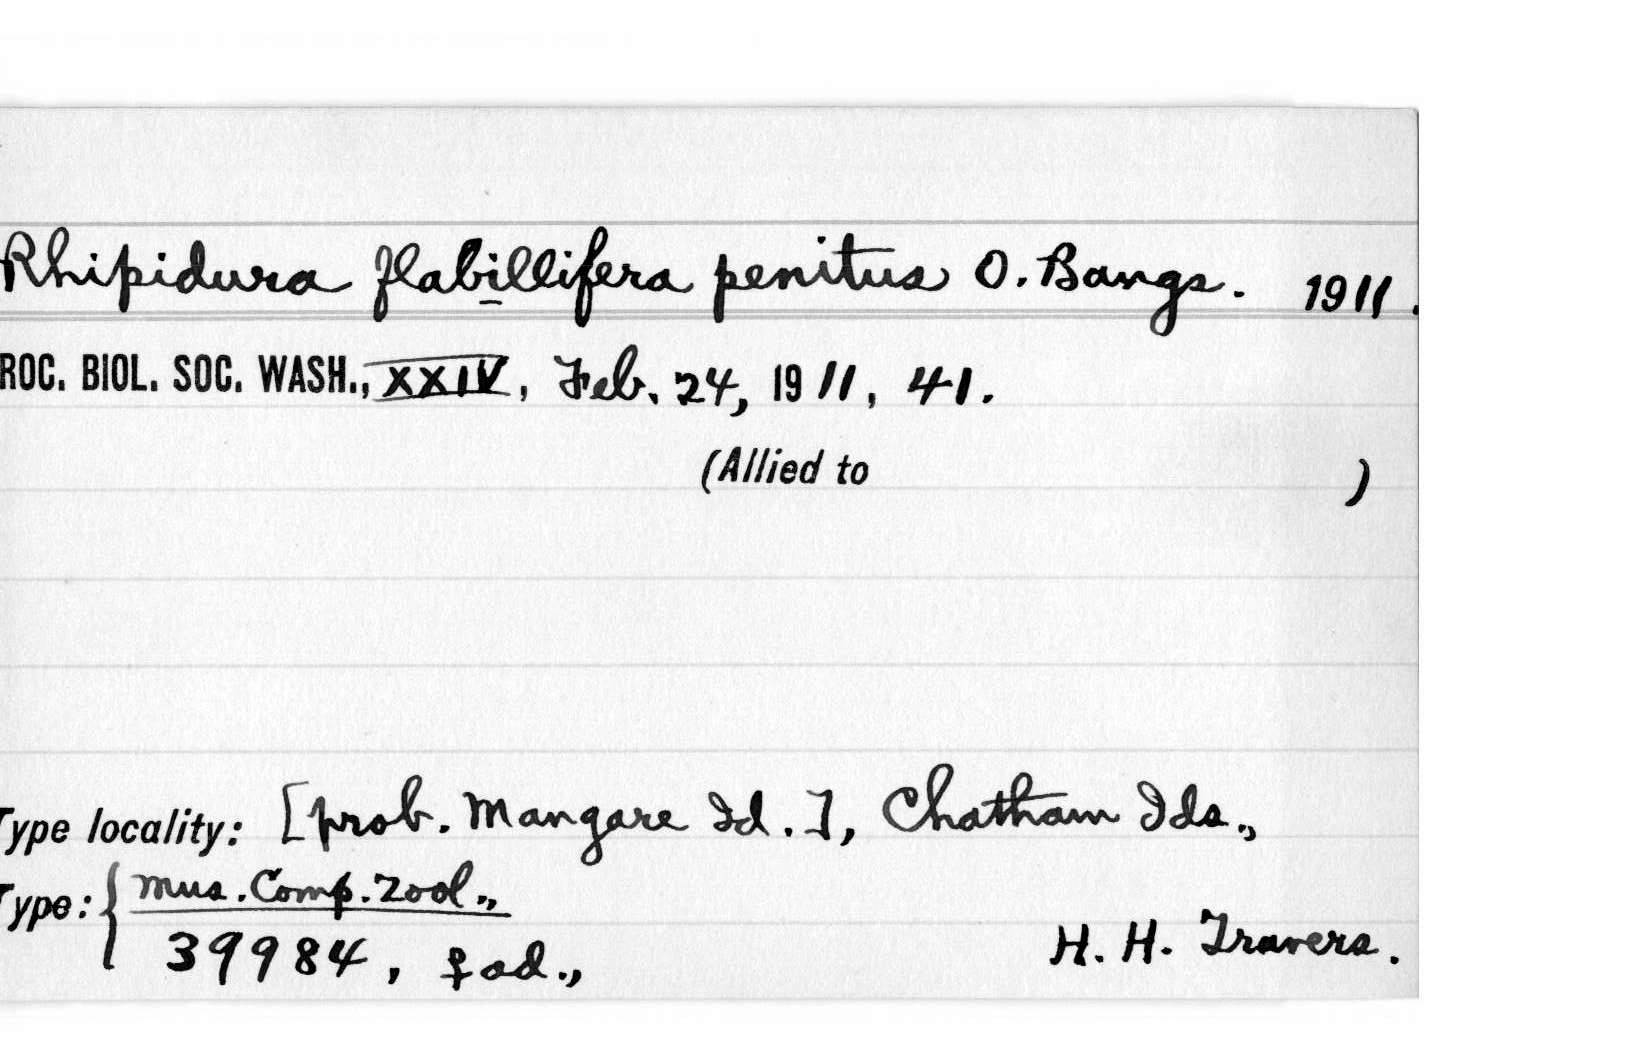 Rhipidura flabillifera penitus O. Bangs. 1911.
ROC. BIOL. SOC. WASH., XXIV, Feb. 24, 1911, 41.
(Allied to )
Type locality: [prob. Mangare Id.], Chatham Ids.,
Type: { Mus. Comp. Zool.,
39984, ♀ ad., H. H. Travers.